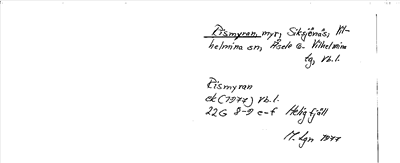 Rismyran, myr, Siksjönäs, Vil-
helmina sn, Åsele o. Vilhelmina
tg, Vb.l.
Rismyran
ek (1977) Vb.l.
22G 8-9 e-f Helgfjäll
M. Lgn 1977